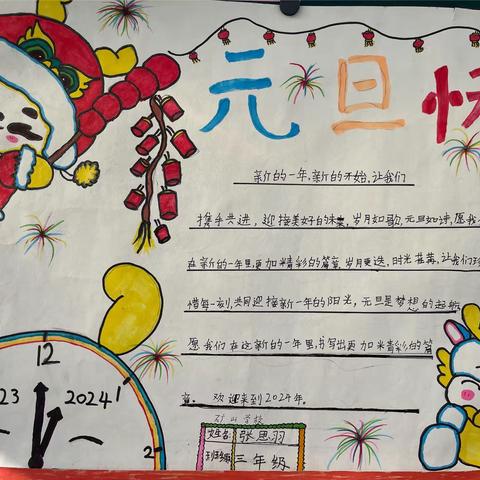 元旦快
新的一年,新的开始,让我们
携手共进,迎接美好的未来,岁月如歌,元旦如诗,愿我
在新的一年里更加精彩的篇章,岁月更迭,时光荏苒,让我们珍
惜每一刻,共同迎接新一年的阳光,元旦是梦想的起航
愿我们在这新的一年里,书写出更加精彩的篇
章。欢迎来到2024年。
12
1
23
2024
2
学校
姓名 张思羽
班级 三年级